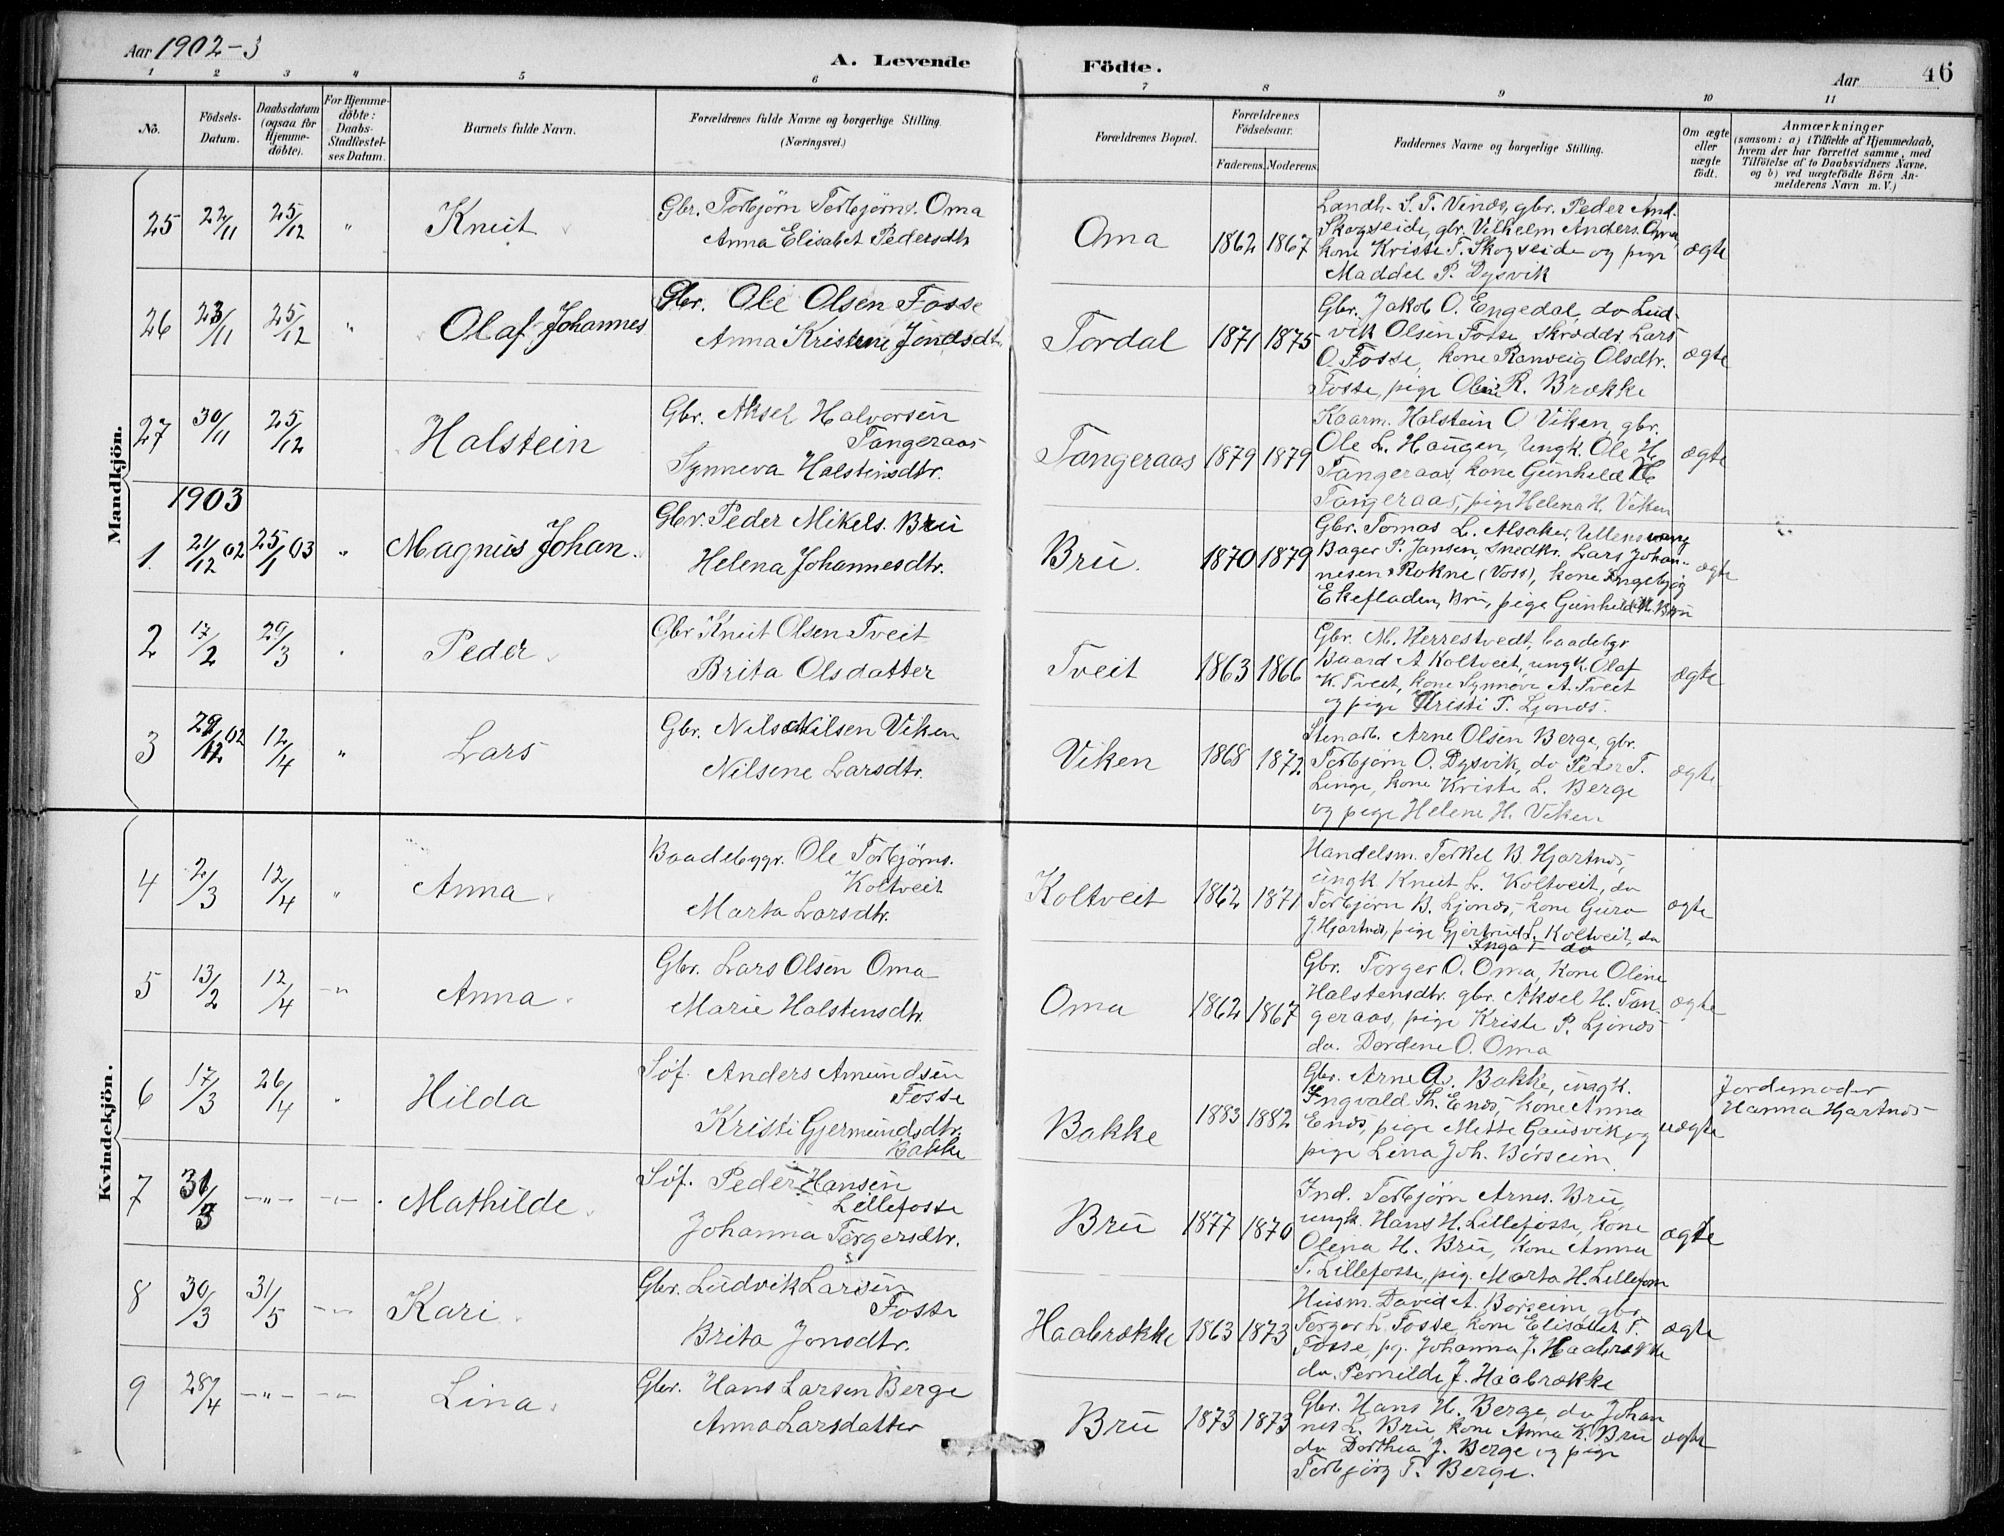 Aar 1902-3
A. Levende
Födte.
Aar
46
1 2 3 4 5 6 7 8 9 10 11
No.
Födsels-Datum.
Daabsdatum (ogsaa for Hjemme-döbte).
For Hjemme-döbte: Daabs-Stadfæstel-ses Datum.
Barnets fulde Navn.
Forældrenes fulde Navne og borgerlige Stilling. (Næringsvei.)
Forældrenes Bopæl.
Forældrenes Födselsaar.
Faderens. Moderens.
Faddernes Navne og borgerlige Stilling.
Om ægte eller uægte födt.
Anmærkninger
(saasom: a) i Tilfælde af Hjemmedaab,
hvem der har forrettet samme, med
Tilföielse af to Daabsvidners Navne,
og b) ved uægtefödte Börn An-
melderens Navn m. V.)
Mandkjön.
25 22/11 25/12 " Knut
Gbr. Torbjørn Torbjørns. Oma
Anna Elisabet Pedersdtr
Oma 1862 1867
Landh. S. T. Vinæs, gbr. Peder And.
Skogseide, gbr. Vilhelm Anders. Oma,
kone Kristi T. Skogseide og pige
Maddel P. Dysvik
ægte
26 23/11 25/12 " Olaf Johannes
Gbr. Ole Olsen Fosse
Anna Kristine Jondsdtr.
Tordal 1871 1875
Gbr. Jakob O. Engedal, do Lud-
vik Olsen Fosse, Skrædd. Lars
O. Fosse, kone Ranveig Olsdtr.
Fosse, pige Oline R. Brække
ægte
27 30/11 25/12 Halstein
Gbr. Aksel Halvorsen
Tangeraas
Synneva Halstensdtr.
Tangeraas 1879 1879
Kaarm. Halstein O Viken, gbr.
Ole L. Haugen, Ungk. Ole H.
Tangeraas, kone Gunhild H
Tangeraas, pige Helena H. Viken
ægte
1903
1. 21/12 02 25/1 03 " Magnus Johan.
Gbr. Peder Mikels. Bru
Helena Johannesdtr.
Bru. 1870 1879
Gbr. Tomas L. Alsaker, Ullensvang
Bager P. Jansen, Snedkr. Lars Johan-
nesen Rokne (Voss), kone Ingebjørg
Ekefladen, Bru, pige Gunhild M. Bru
ægte
2 17/2 29/3 Peder
Gbr Knut Olsen Tveit
Brita Olsdatter
Tveit 1863 1866
Gbr. M. Herrestvedt, baadebgr
Baard A Koltveit, ungk. Olaf
K. Tveit, kone Synnøve A. Tveit
og pige Kristi T. Ljonæs.
ægte
3 29/12 02 12/4 " Lars
Gbr. Nils Nilsen Viken
Nilsene Larsdtr.
Viken 1868 1872
Stenarb. Arne Olsen Berge, gbr.
Torbjørn O. Dysvik, do Peder T.
Linge, kone Kristi L. Berge
og pige Helene H. Viken
ægte
Kvindekjön.
4 2/3 12/4 " Anna
Baadebyggr. Ole Torbjørns.
Koltveit
Marta Larsdtr.
Koltveit 1862 1871
Handelsm. Torkel B. Hjartnæs,
ungk. Knut L. Koltveit, do
Torbjørn B. Ljonæs, kone Guro
J. Hjartnæs, pige Gjertrud L. Koltveit, do
Inga T do
ægte
5 13/2 12/4 -"- Anna
Gbr. Lars Olsen Oma
Marie Halstensdtr.
Oma 1862 1867
Gbr. Torger O. Oma, kone Oline
Halstensdtr. gbr. Aksel H. Tan-
geraas, pige Kristi P. Ljonæs
do. Dordene O. Oma
ægte
6 17/3 26/4 " Hilda
Søf. Anders Amundsen
Fosse
Kristi Gjermundsdtr.
Bakke
Bakke 1883 1882
Gbr. Arne A. Bakke, ungk.
Ingvald Th. Enæs, kone Anna
Enæs, pige Mette Gausvik og
pige Lena Joh. Børseim
uægte
Jordemoder
Hanna Hjartnæs
7 31/3 -"- -"- Mathilde
Søf. Peder Hansen
Lillefosse
Johanna Torgersdtr.
Bru 1877 1870
Ind. Torbjørn Arnes. Bru,
ungk. Hans H. Lillefosse, kone
Olena H. Bru, kone Anna
T. Lillefosse, pig. Marta H. Lillefosse
ægte
8 30/3 31/5 -"- Kari
Gbr. Ludvik Larsen
Fosse
Brita Jonsdtr.
Haabrække 1863 1873
Husm. David A. Børseim, gbr.
Torger L Fosse, kone Elisabet T.
Fosse, pg. Johanna J. Haabrække
do. Pernilde J. Haabrække
ægte
9 28/4 -"- -"- Lina
Gbr. Hans Larsen Berge
Anna Larsdatter
Bru 1873 1873
Gbr. Hans H. Berge, do Johan
nes L. Bru, kone Anna K. Bru
do Dorthea J. Berge og pige
Torbjørg T. Berge.
ægte